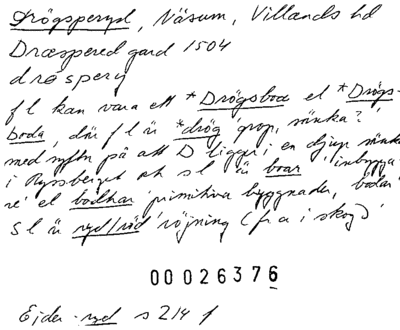 Drögsperyd, Näsum, Villands hd
Dræspered gard 1504
dréspery
f l kan vara ett *Drögsboa el *Drögs-
boda, där f l är *drög 'grop, sänka?'
med syftn på att D ligger i en djup sänka
i Ryssberget och s l är boar 'inbygga-
re' el bodhar 'primitiva byggnader, bodar'
s l är ryd/röd 'röjning (fr a i skog)'
00026376
Ejder -ryd s 214 f